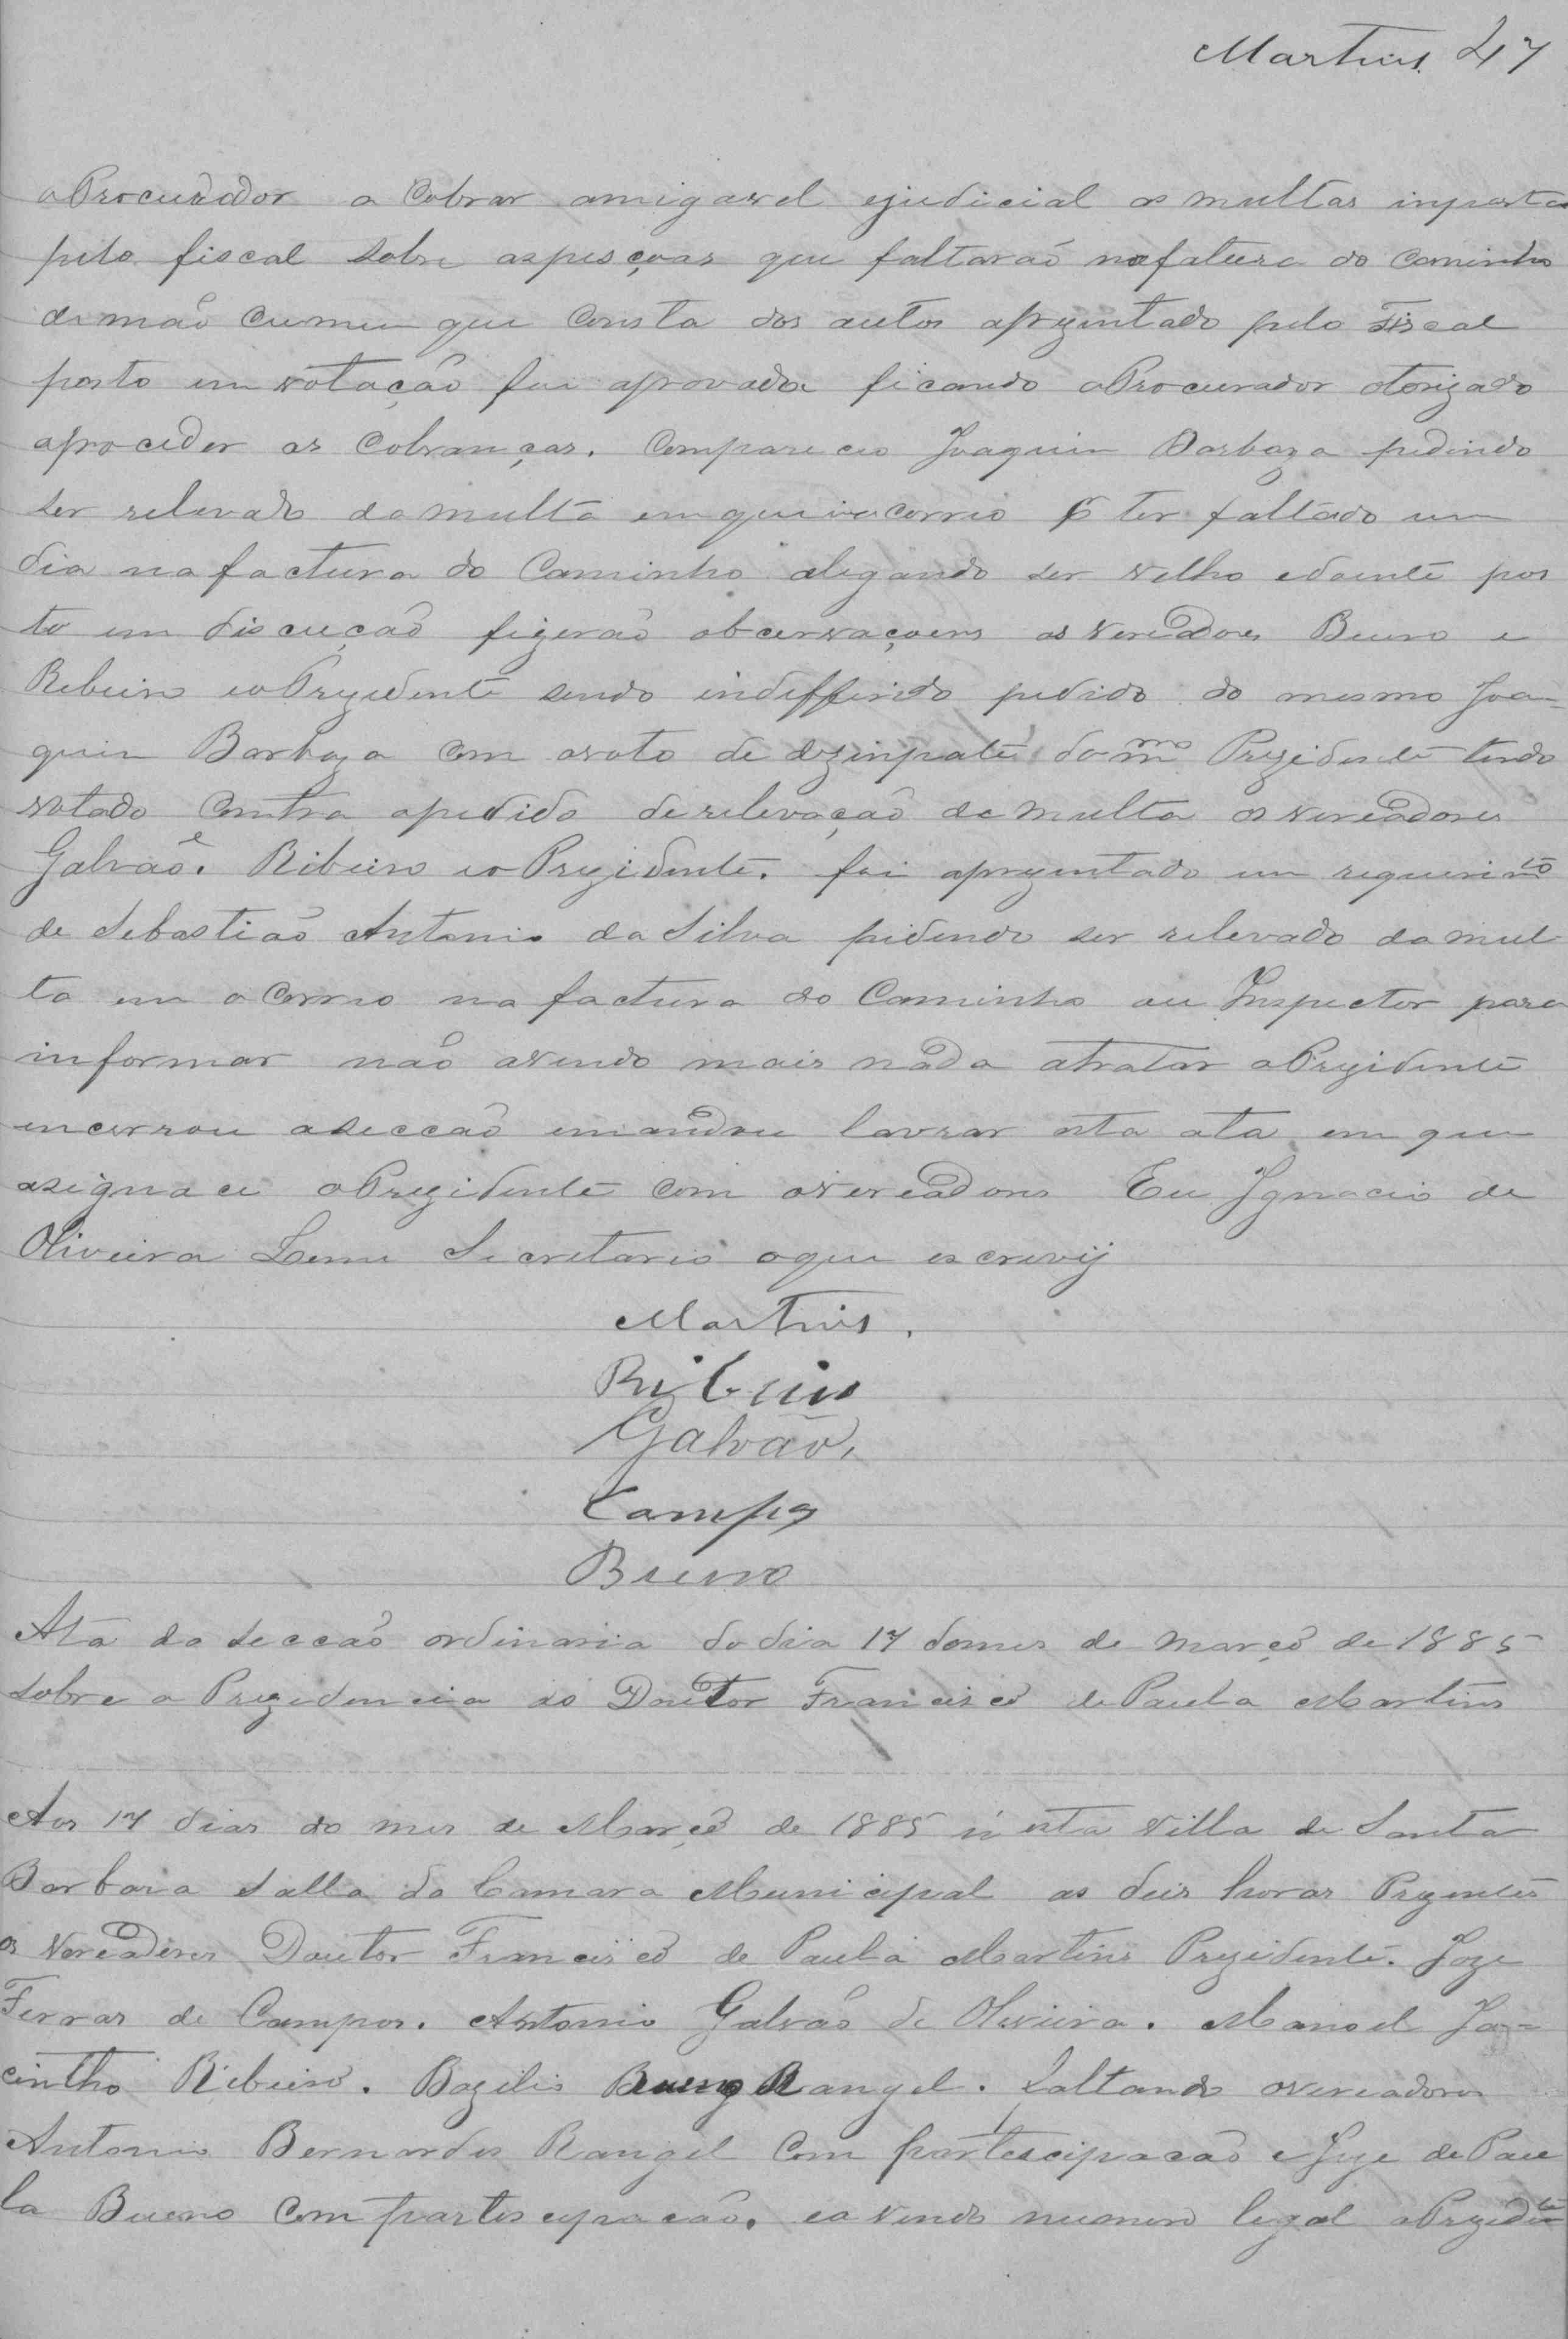 Martins 47
oProcurador a Cobrar amigavel ejudicial as multas inposta
pelo fiscal sobre aspesçoas que faltaraõ nafatura do Caminho
demaõ cumum que Consta dos autos aprezentado pelo Fiscal
posto em votaçaõ foi aprovado ficando oProcurador otorizado
aproceder as Cobranças. Compareceo Joaquin Barboza pedindo
ser relevado damulta emqueincorrio p ter faltado um
dia nafactura do Caminho alegando ser velho edoente pos
to em discuçaõ fizeraõ obcervaçoens os Vereadores Bueno e
Ribeiro eoPrezidente sendo indefferido pedido do mesmo Joa=
quin Barboza com ovoto de dezinpate do mmo Prezidente tendo
votado Contra opedido derelevaçaõ de multa os vereadores
Galvaõ e. Ribeiro eoPrezidente. foi aprezentado um requerimto
de Sebastiaõ Antonio da Silva pidindo ser relevado damul
ta em oCorrio na factura do Caminho au Inspector para
informar naõ avendo mais nada atratar oPrezidente
encerrou aseccaõ emandou lavrar esta ata em que
asignace oPrezidente com overeadores Eu Ignacio de
Oliveira Leme Secretario oque escrevij
Martins.
Ribeiro
Galvão,
Campos
Bueno
Ata da seccaõ ordinaria dodia 17 domes de março de 1885
sobre a Prezidencia do Doutor Francisco dePaula Martins
Aos 17 dias do mes de Março de 1885 n esta Villa de Santa
Barbara salla da Camara Municipal as deis horas Prezentes
os Vereadores Doutor Francisco de Paula Martins Prezidente. Joze
Ferras de Campos. Antonio Galvaõ de Oliveira. Manoel Ja=
cintho Ribeiro. Bazilio Bueno Rangel. Faltando overeadores
Antonio Bernardes Rangel Com partescipacaõ eJoze dePau
la Bueno Com partescipacaõ. eavendo numero legal oPrezidte